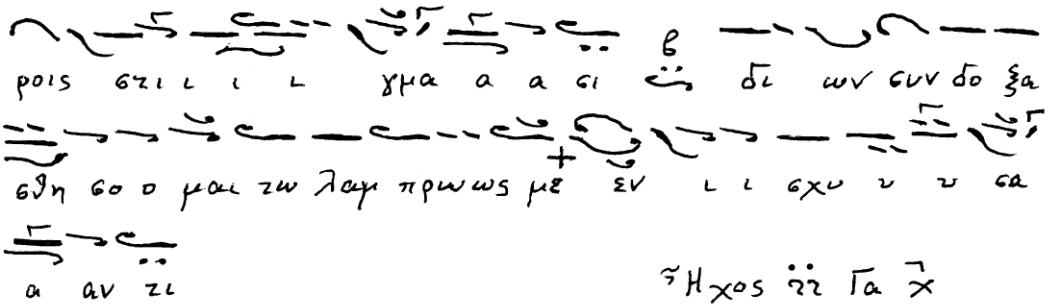 ροις στι ι ι ι γμα α α σι δι ων συν δο ξα
σθη σο ο μαι τω λαμ πρω ως με εν ι ι σχυ υ υ σα
α αν τι
Ἦχος Γα